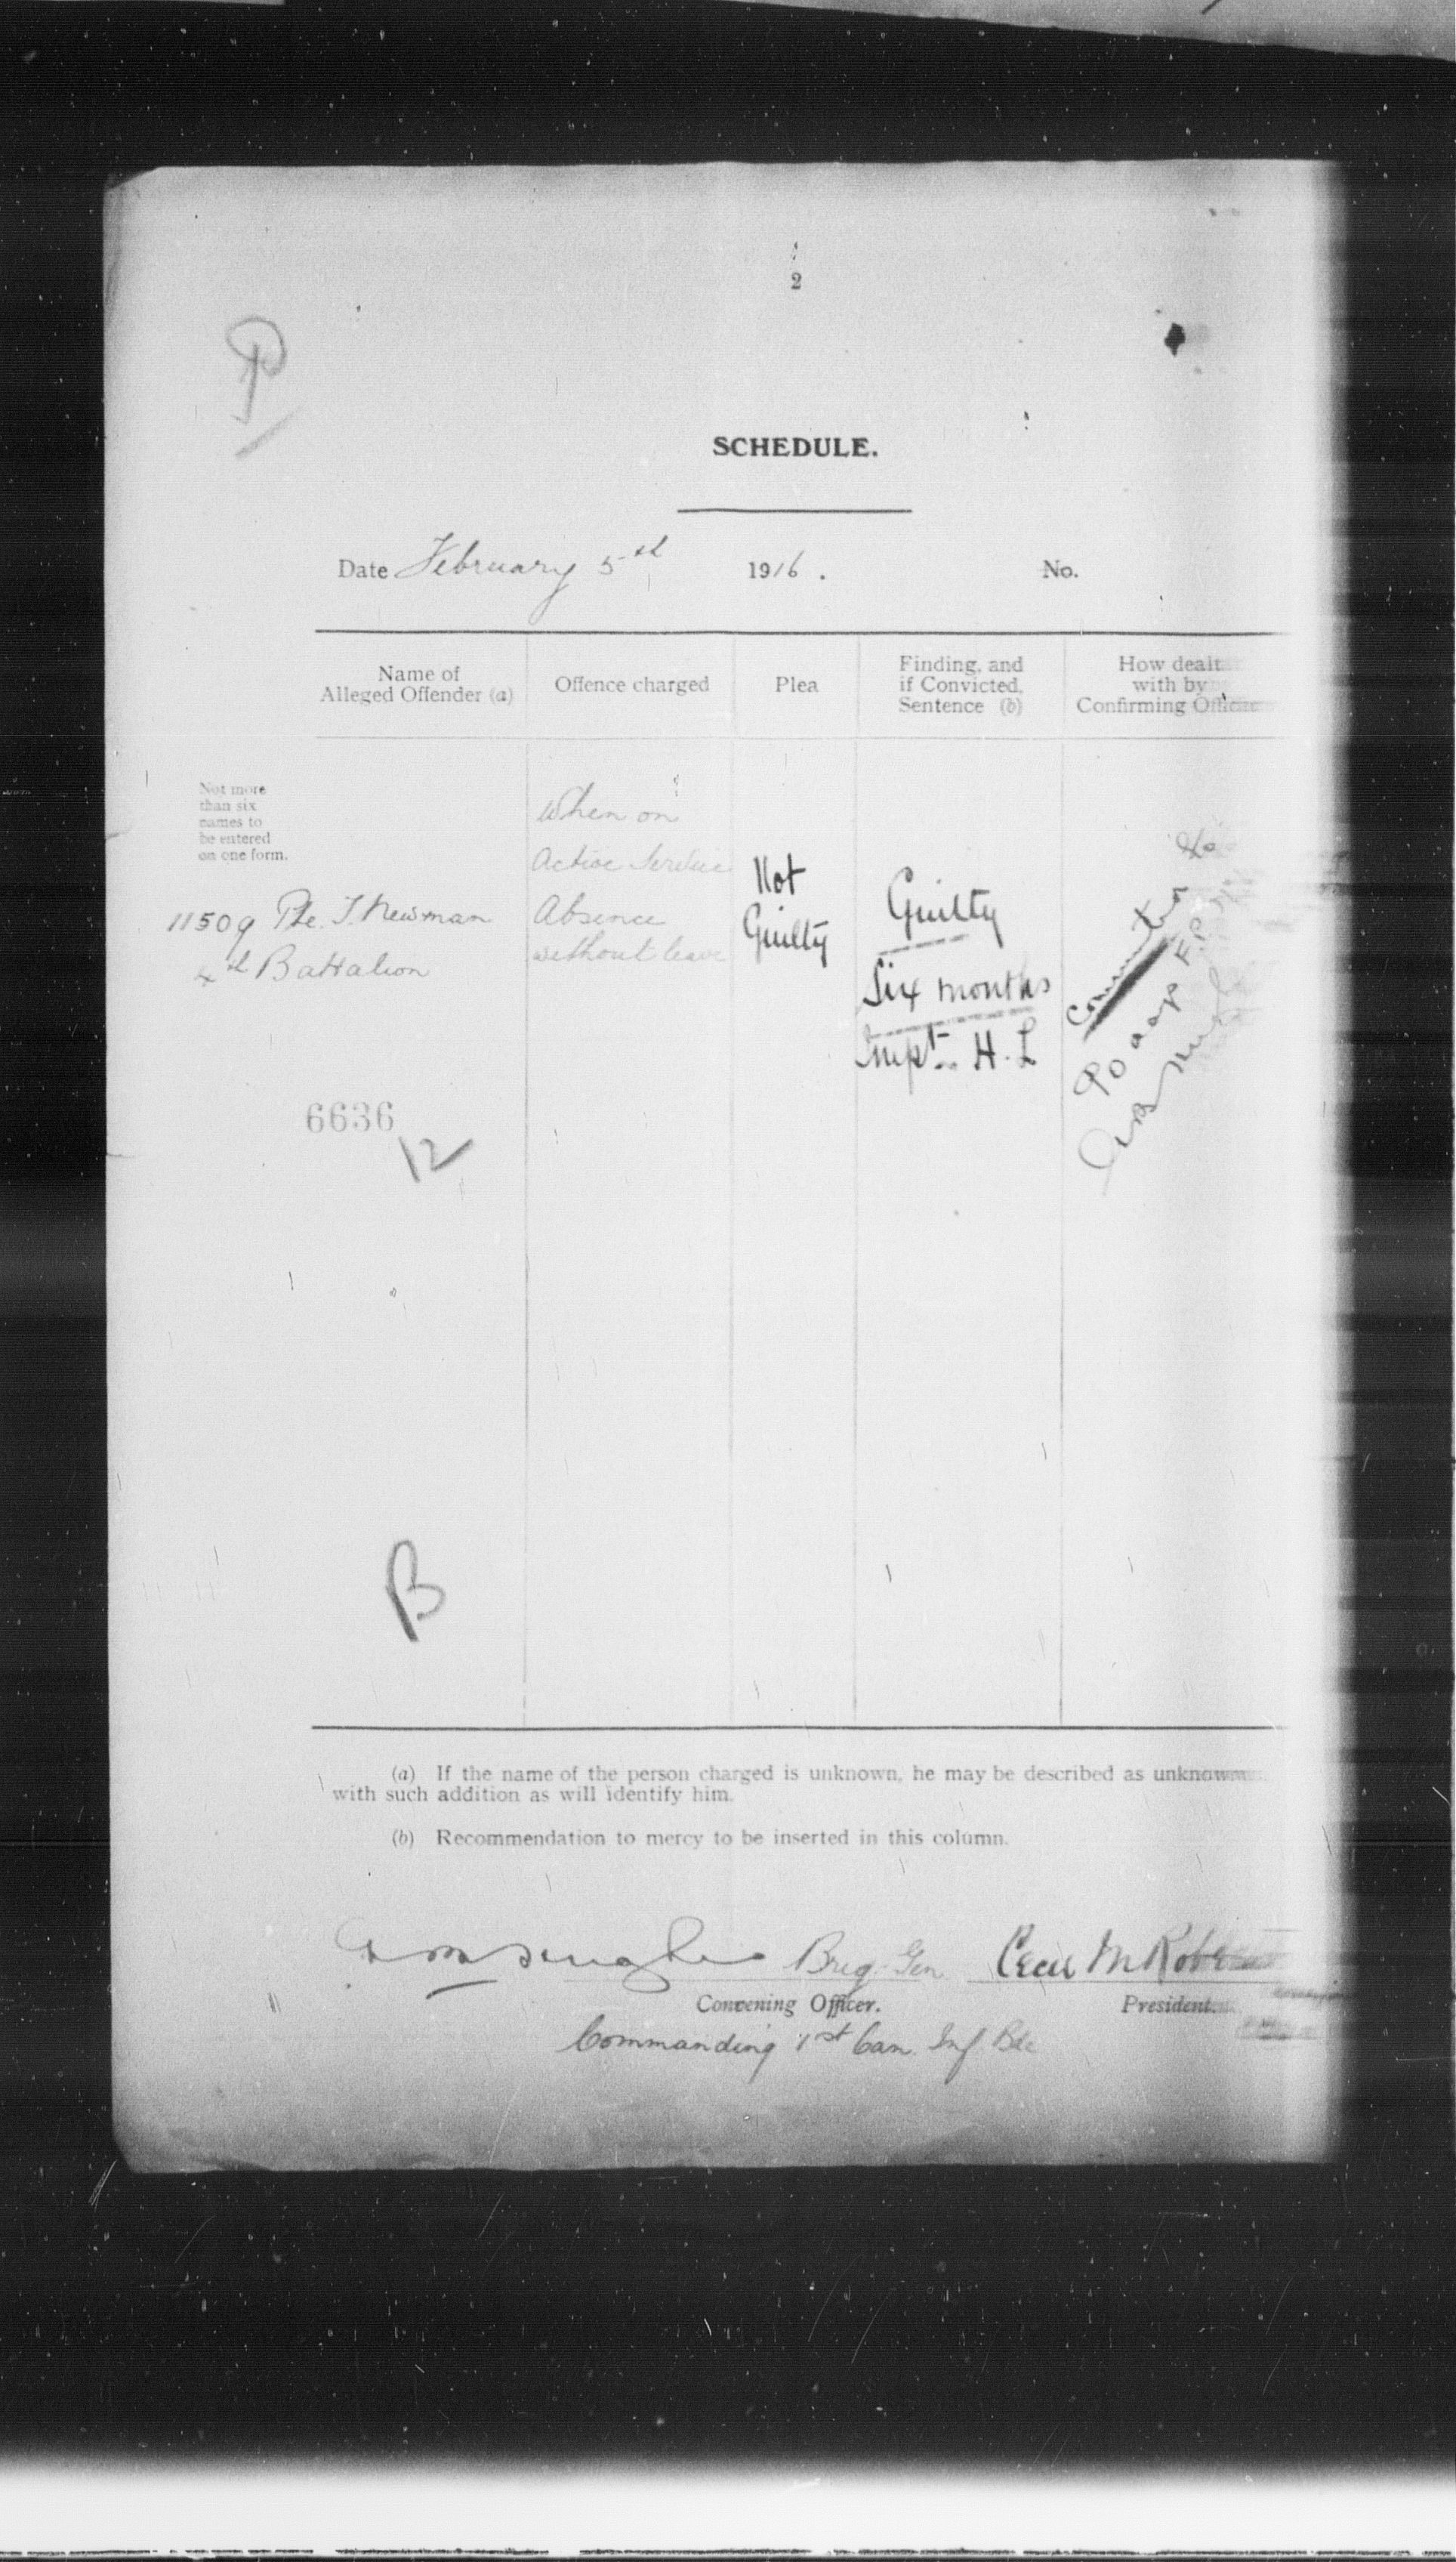 2
P
SCHEDULE.
Date February 5th 1916. No.
Name of Alleged Offender (a)
Offence charged
Plea
Finding, and if Convicted, Sentence (b)
How dealt with by Confirming
Not more
than six
names to
be entered
on one form.
11509 Pte. J. Newman
4th Battalion
When on
Active Service
Absence
without leave
Not
Guilty
Guilty
Six months
Impt. H. L
to
90 days F.P.
6636
12
B
(a) If the name of the person charged is unknown, he may be described as unknown
with such addition as will identify him.
(b) Recommendation to mercy to be inserted in this column.
Brig. Gen Cecil M Robe
Convening Officer. President.
Commanding 1st Can. Inf. Bde